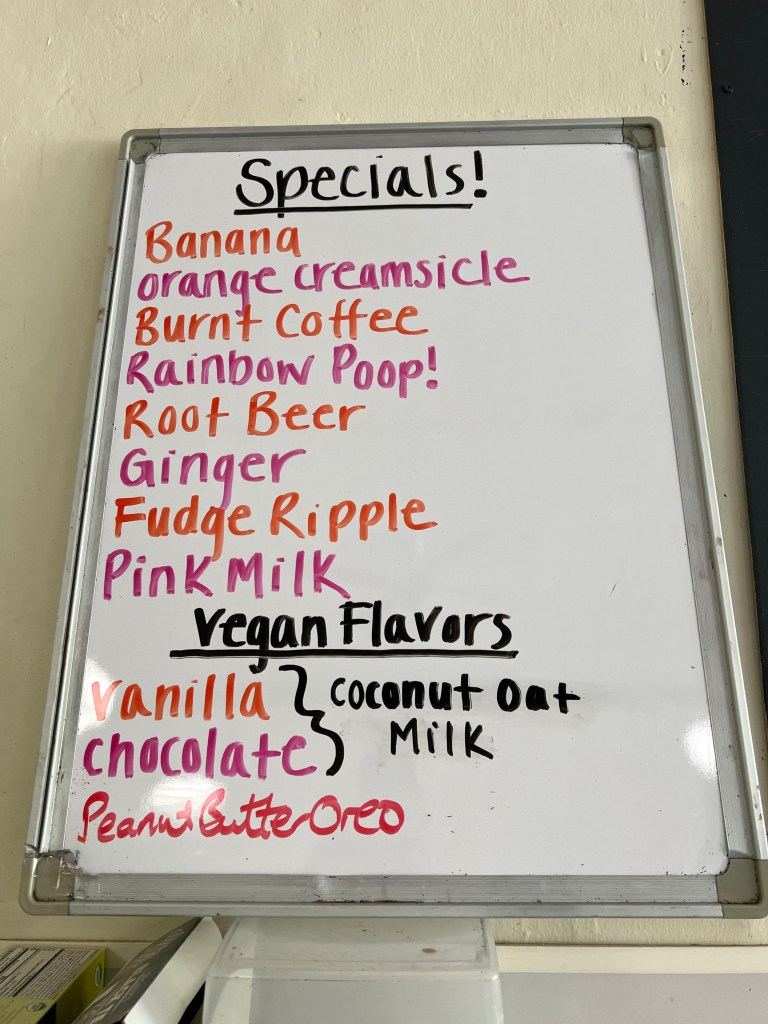 Specials!
Banana
orange creamsicle
Burnt Coffee
Rainbow Poop!
Root Beer
Ginger
Fudge Ripple
Pink Milk
Vegan Flavors
vanilla } coconut oat
chocolate } Milk
Peanut Butter Oreo